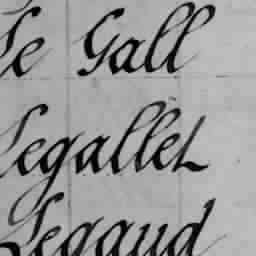 Le Gall
Legallet
Legaud